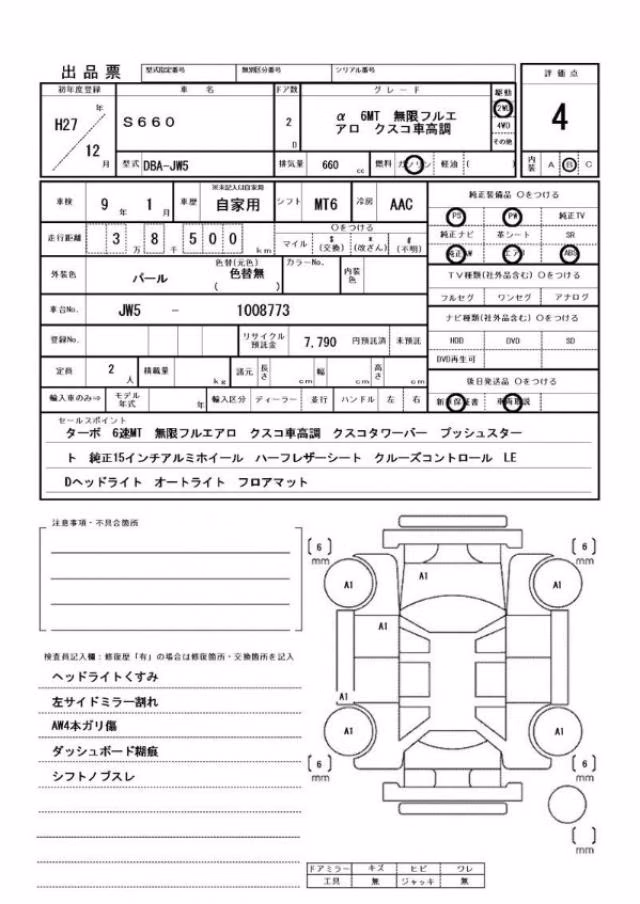 出品票 型式指定番号 類別区分番号 シリアル番号 評価点
初年度登録 車名 ドア数 グレード 駆動
H27 年 12 月
S660
2 D
α 6MT 無限フルエ
アロ クスコ車高調
2WD
4WD
その他
4
型式 DBA-JW5 排気量 660 cc 燃料 ガソリン 軽油 ( ) 内装 A B C
車検 9 年 1 月 車歴 ※未記入は自家用 自家用 シフト MT6 冷房 AAC
走行距離 3 万 8 千 5 0 0 km
○をつける
マイル $ (交換) * (改ざん) # (不明)
外装色 パール 色替(元色) 色替無 ( ) カラーNo. 内装色
車台No. JW5 - 1008773
登録No. リサイクル預託金 7,790 円預託済 未預託
定員 2 人 積載量 kg 諸元 長さ cm 幅 cm 高さ cm
輸入車のみ⇒ モデル年式 年 輸入区分 ディーラー 並行 ハンドル 左 右
純正装備品 ○をつける
PS PW 純正TV
純正ナビ 革シート SR
純正AW エアB ABS
TV種類(社外品含む) ○をつける
フルセグ ワンセグ アナログ
ナビ種類(社外品含む) ○をつける
HDD DVD SD
DVD再生可
後日発送品 ○をつける
新車保証書 車両取説
セールスポイント
ターボ 6速MT 無限フルエアロ クスコ車高調 クスコタワーバー プッシュスター
ト 純正15インチアルミホイール ハーフレザーシート クルーズコントロール LE
Dヘッドライト オートライト フロアマット
注意事項・不具合箇所
検査員記入欄：修復歴「有」の場合は修復箇所・交換箇所を記入
ヘッドライトくすみ
左サイドミラー割れ
AW4本ガリ傷
ダッシュボード糊痕
シフトノブスレ
[6] mm [6] mm
A1 A1 A1
A1
A1
A1 A1
[6] mm [6] mm
[ ] mm
ドアミラー キズ ヒビ ワレ
工具 無 ジャッキ 無